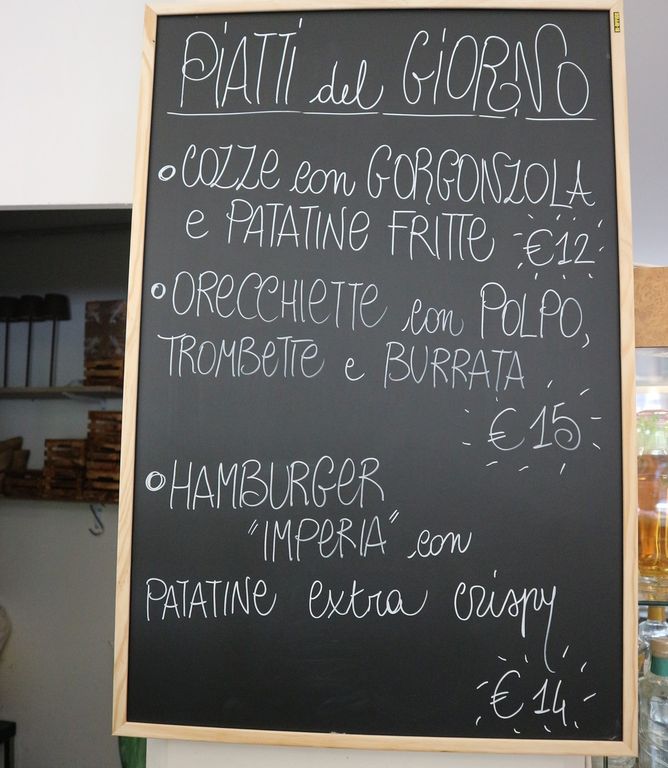 PIATTI del GIORNO
COZZE con GORGONZOLA
e PATATINE FRITTE €12
ORECCHIETTE con POLPO,
TROMBETTE e BURRATA
€15
HAMBURGER
"IMPERIA" con
PATATINE extra crispy
€14